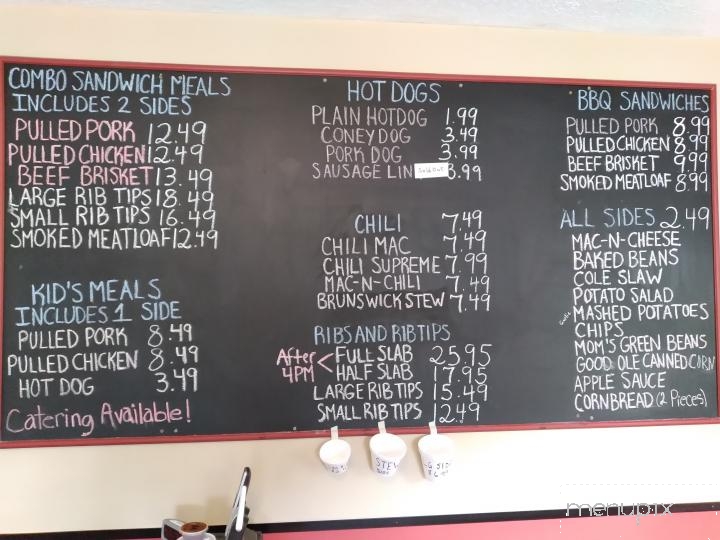 COMBO SANDWICH MEALS
INCLUDES 2 SIDES
PULLED PORK 12.49
PULLED CHICKEN 12.49
BEEF BRISKET 13.49
LARGE RIB TIPS 18.49
SMALL RIB TIPS 16.49
SMOKED MEATLOAF 12.49
KID'S MEALS
INCLUDES 1 SIDE
PULLED PORK 8.49
PULLED CHICKEN 8.49
HOT DOG 3.49
Catering Available!
HOT DOGS
PLAIN HOTDOG 1.99
CONEY DOG 3.49
PORK DOG 3.99
SAUSAGE LIN Sold Out 3.99
CHILI 7.49
CHILI MAC 7.49
CHILI SUPREME 7.99
MAC-N-CHILI 7.49
BRUNSWICK STEW 7.49
RIBS AND RIB TIPS
After 4PM < FULL SLAB 25.95
HALF SLAB 17.95
LARGE RIB TIPS 15.49
SMALL RIB TIPS 12.49
BBQ SANDWICHES
PULLED PORK 8.99
PULLED CHICKEN 8.99
BEEF BRISKET 9.99
SMOKED MEATLOAF 8.99
ALL SIDES 2.49
MAC-N-CHEESE
BAKED BEANS
COLE SLAW
POTATO SALAD
MASHED POTATOES
CHIPS
MOM'S GREEN BEANS
GOOD OLE CANNED CORN
APPLE SAUCE
CORNBREAD (2 Pieces)
STEW
menupix